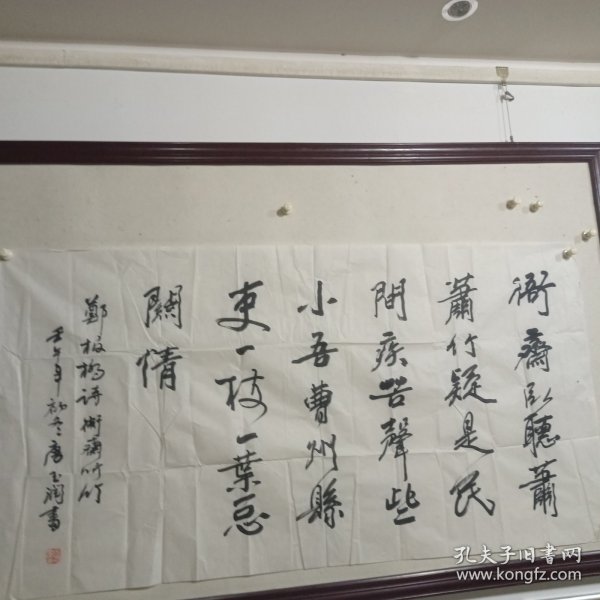 衙齋臥聽蕭
蕭竹疑是民
間疾苦聲些
小吾曹州縣
吏一枝一葉总
關情
鄭板橋詩衙齋竹
壬午年初冬唐玉潤書
孔夫子旧书网
www.kongfz.com